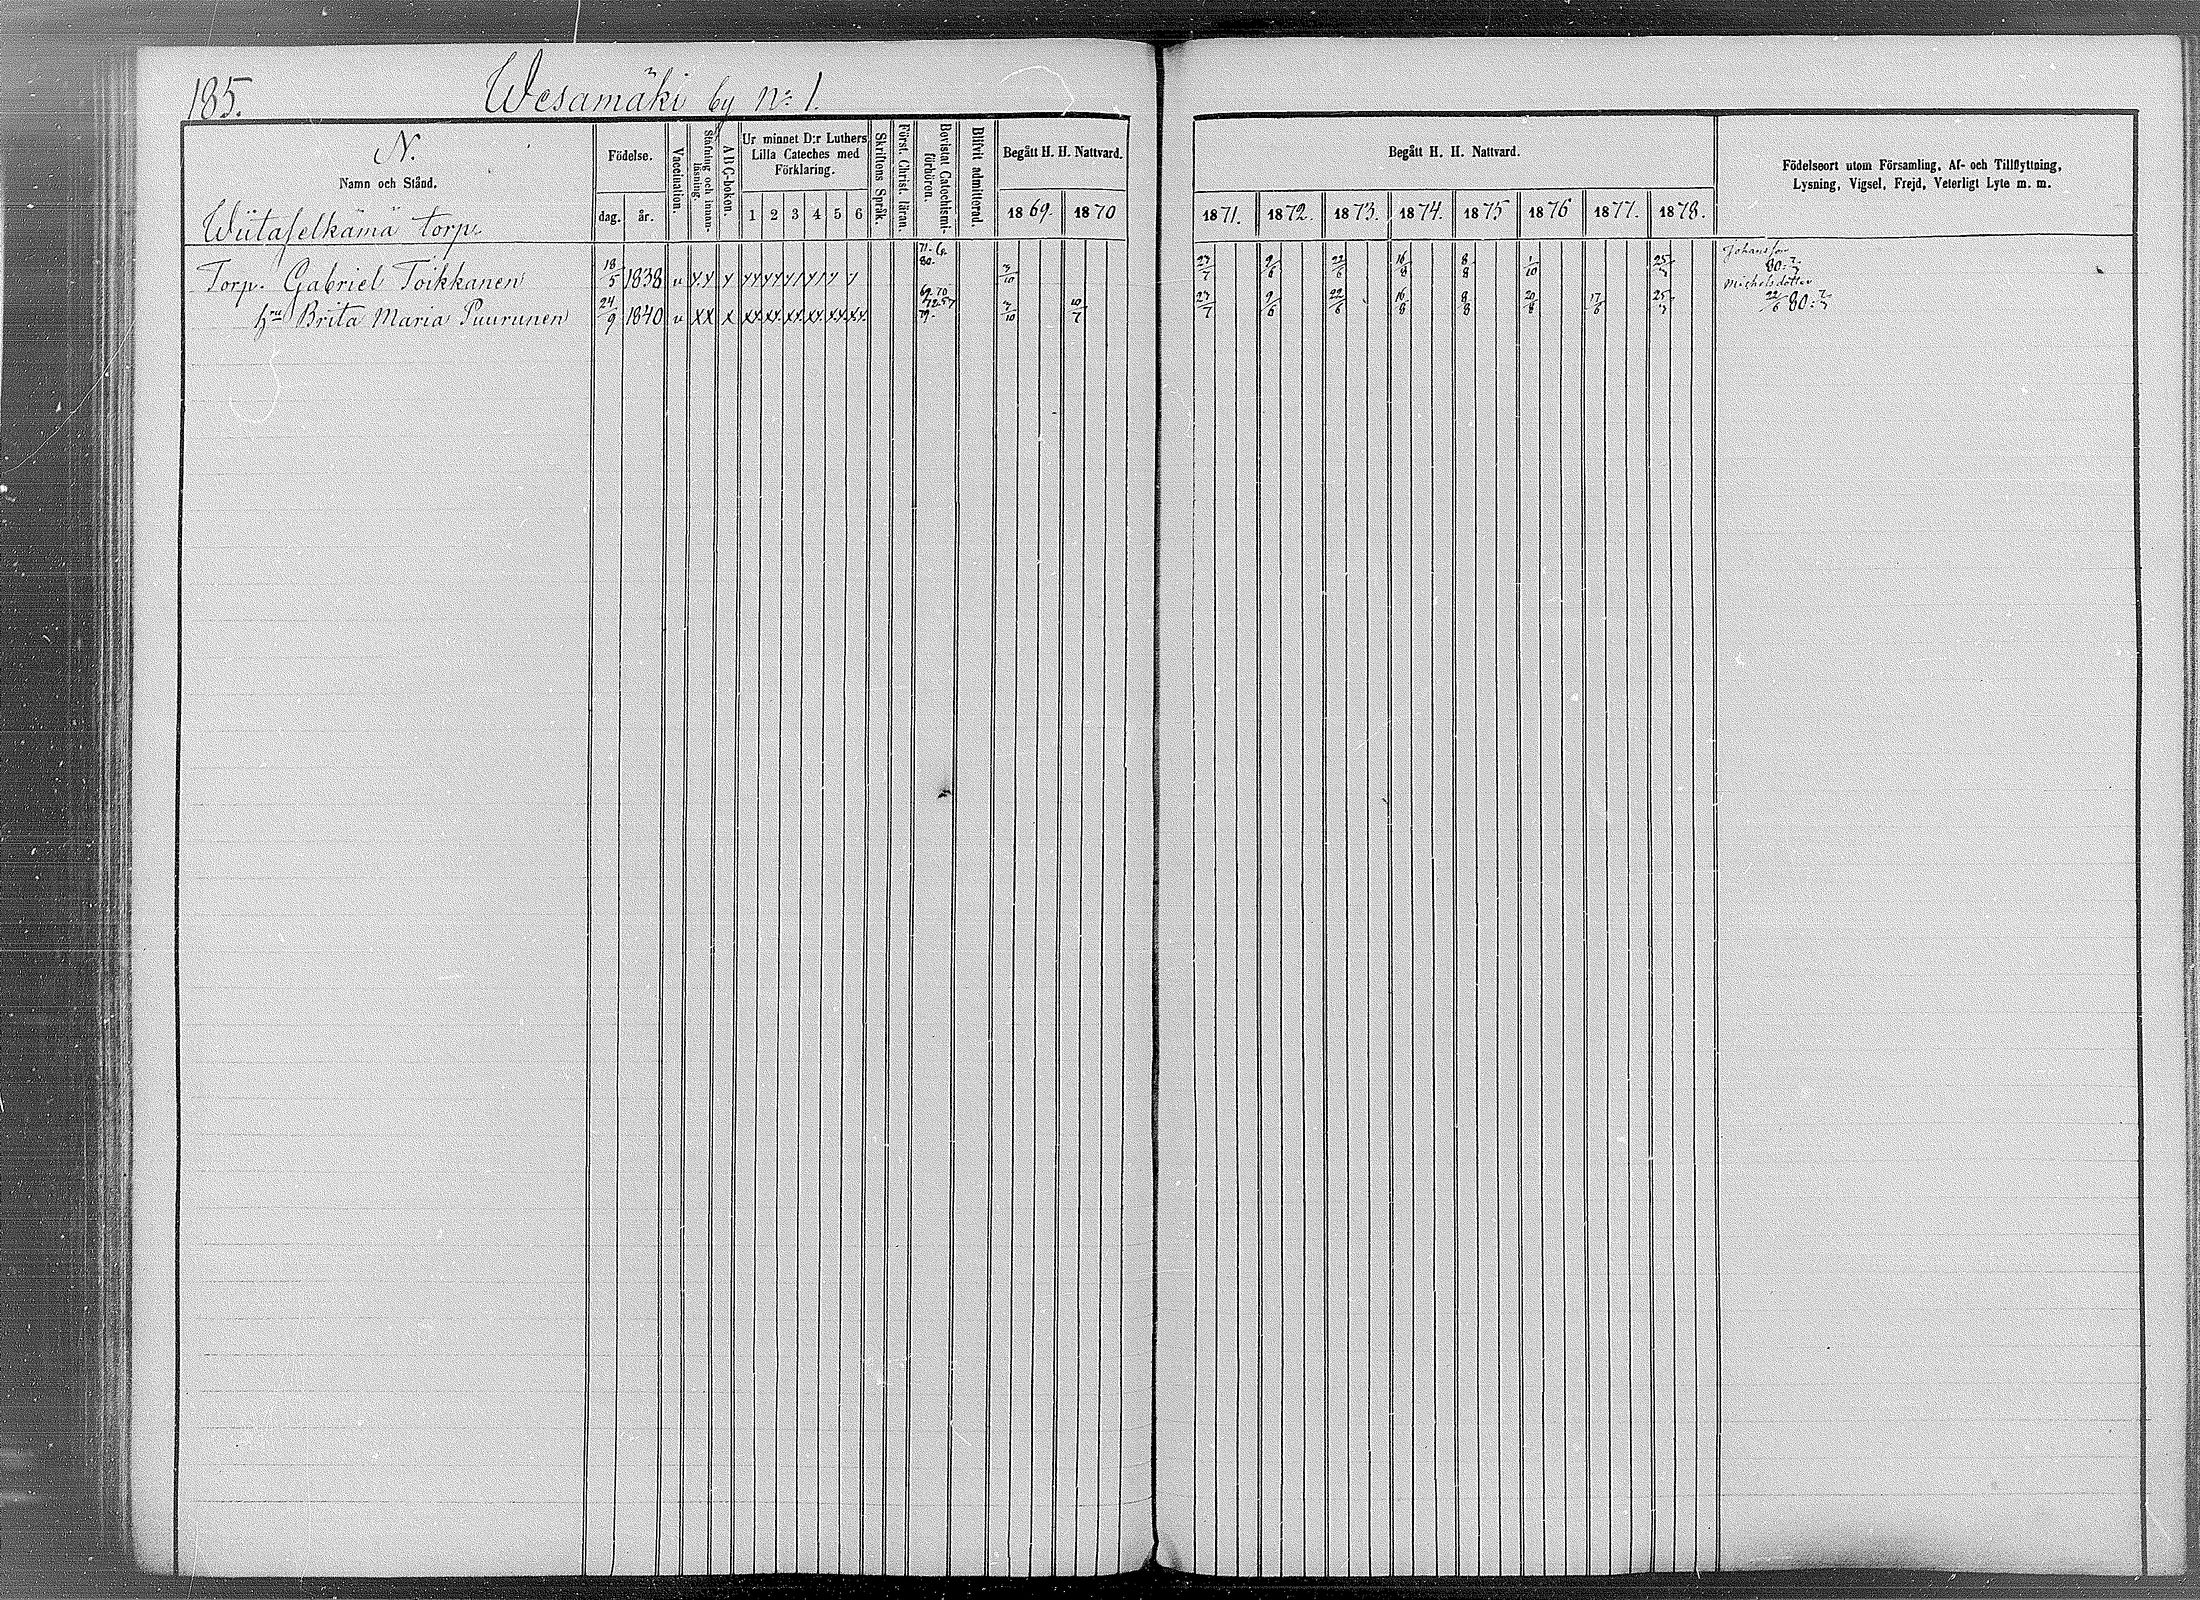 185.
Wesamäki by No 1.
N.
Namn och Stånd.
Födelse.
dag. år.
Vaccination.
Stafning och innanläsning.
A B C-boken.
Ur minnet D:r Luthers
Lilla Cateches med
Förklaring.
1 2 3 4 5 6
Skriftens Språk.
Först. Christ. läran.
Bevistat Catechismiförhören.
Blifvit admitterad.
Begått H. H. Nattvard.
1869. 1870
Begått H. H. Nattvard.
1871. 1872. 1873. 1874. 1875 1876 1877. 1878.
Födelseort utom Församling, Af- och Tillflyttning,
Lysning, Vigsel, Frejd, Veterligt Lyte m. m.
Torp. Gabriel Toikkanen 18/5 1838 v 71. 80. 3/10 23/7 9/6 22/6 16/8 8/8 1/10 Johansson 80:
hru Brita Maria Puurunen 24/9 1840 v xx x xx xx xx xx xx xx 69. 70 79. 3/10 10/7 23/7 9/6 22/6 16/8 8/8 20/8 17/6 Michelsdotter 22/6 80: